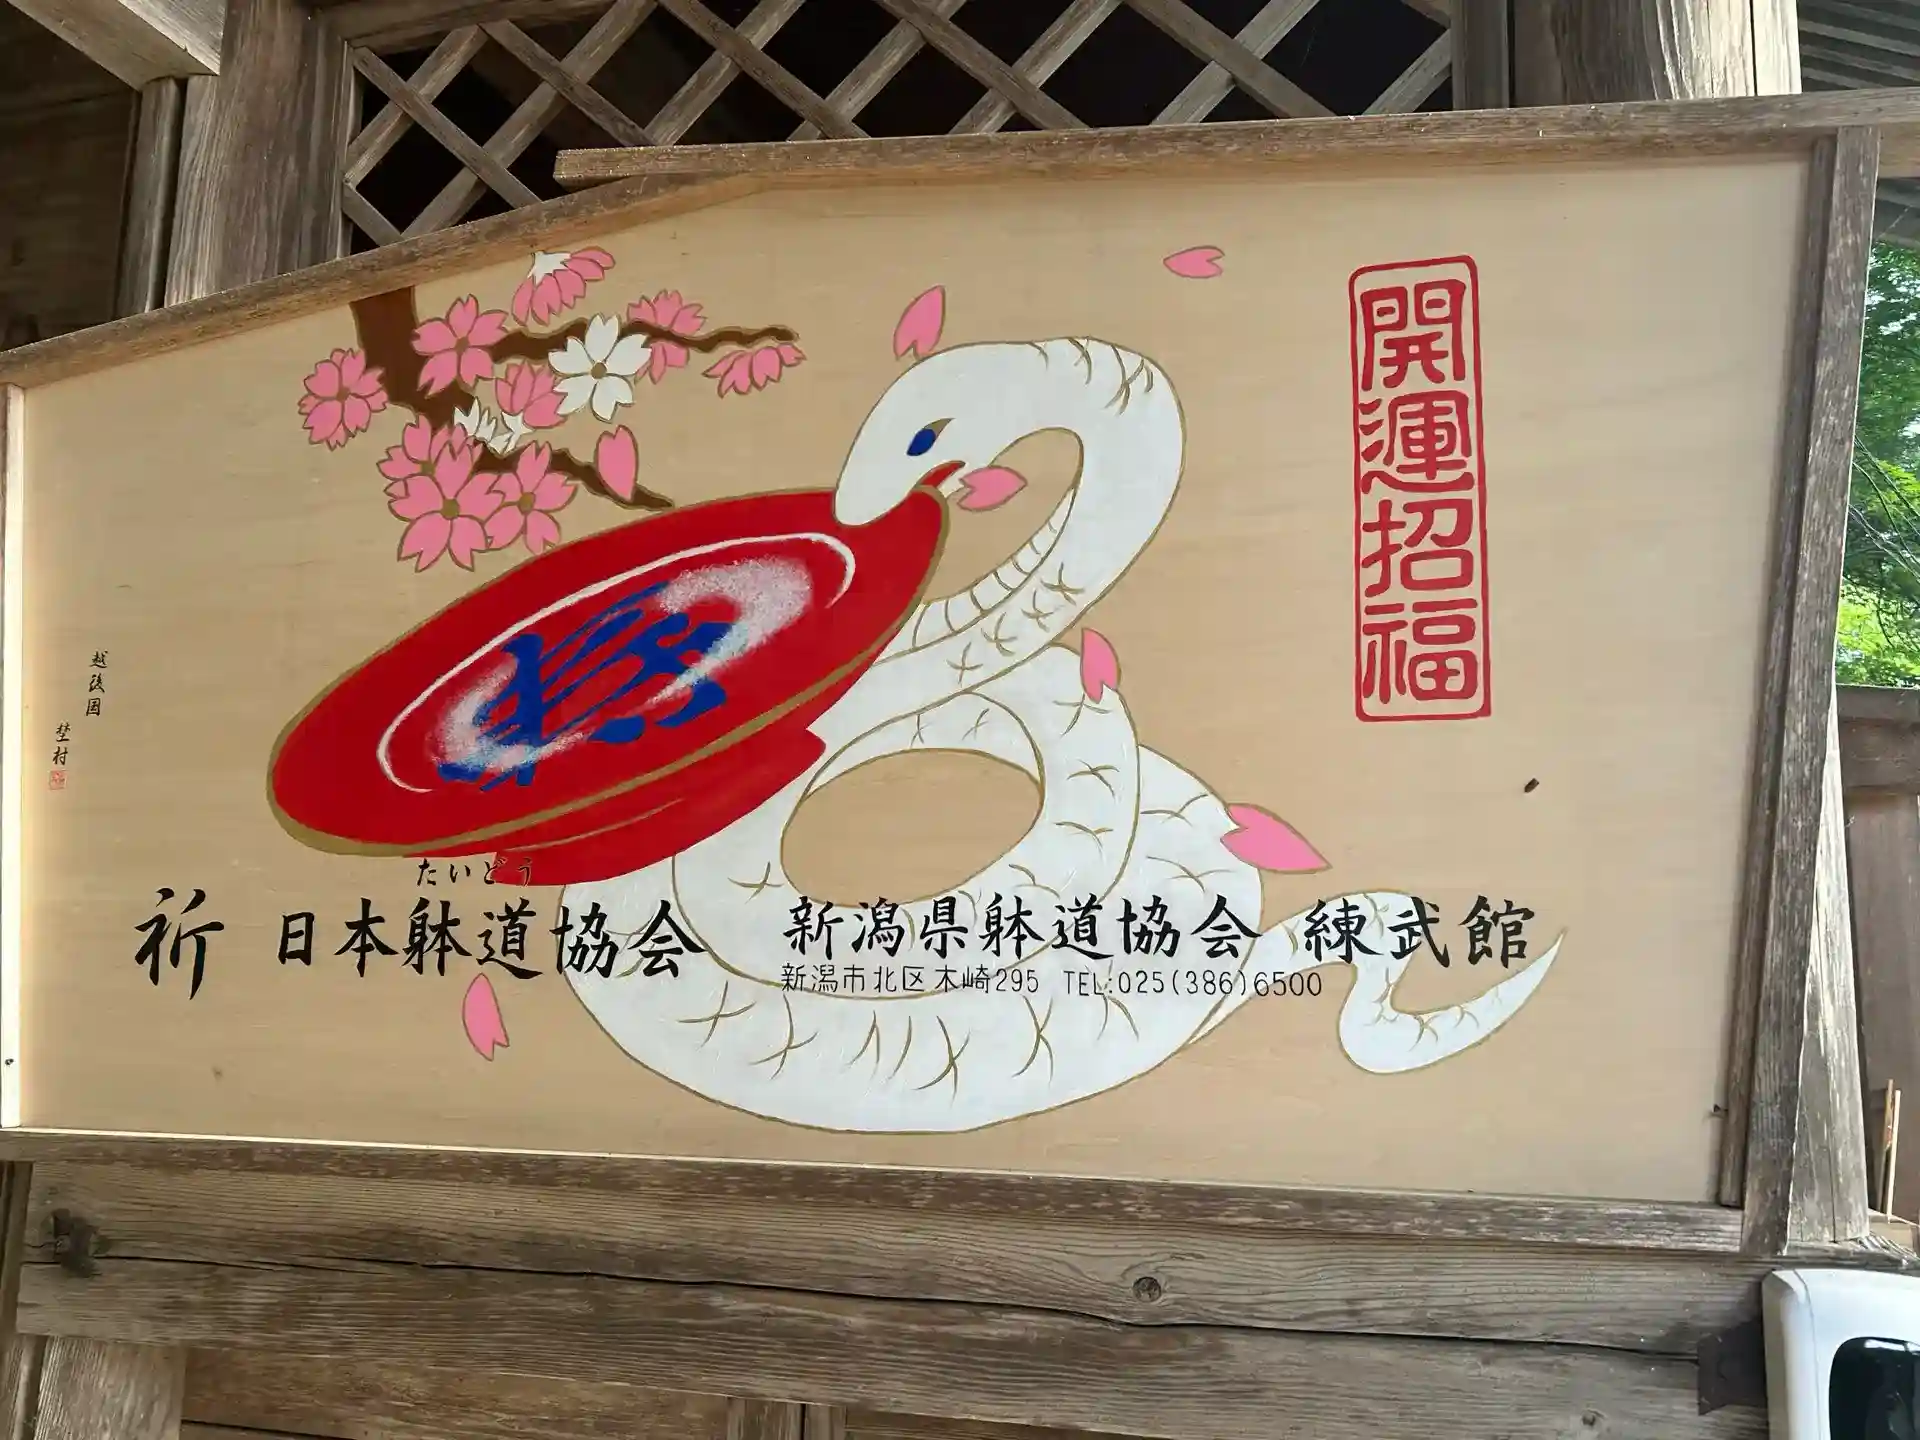 開運招福
たいどう
祈 日本躰道協会 新潟県躰道協会 練武館
新潟市北区木崎295 TEL:025(386)6500
越後国
埜村